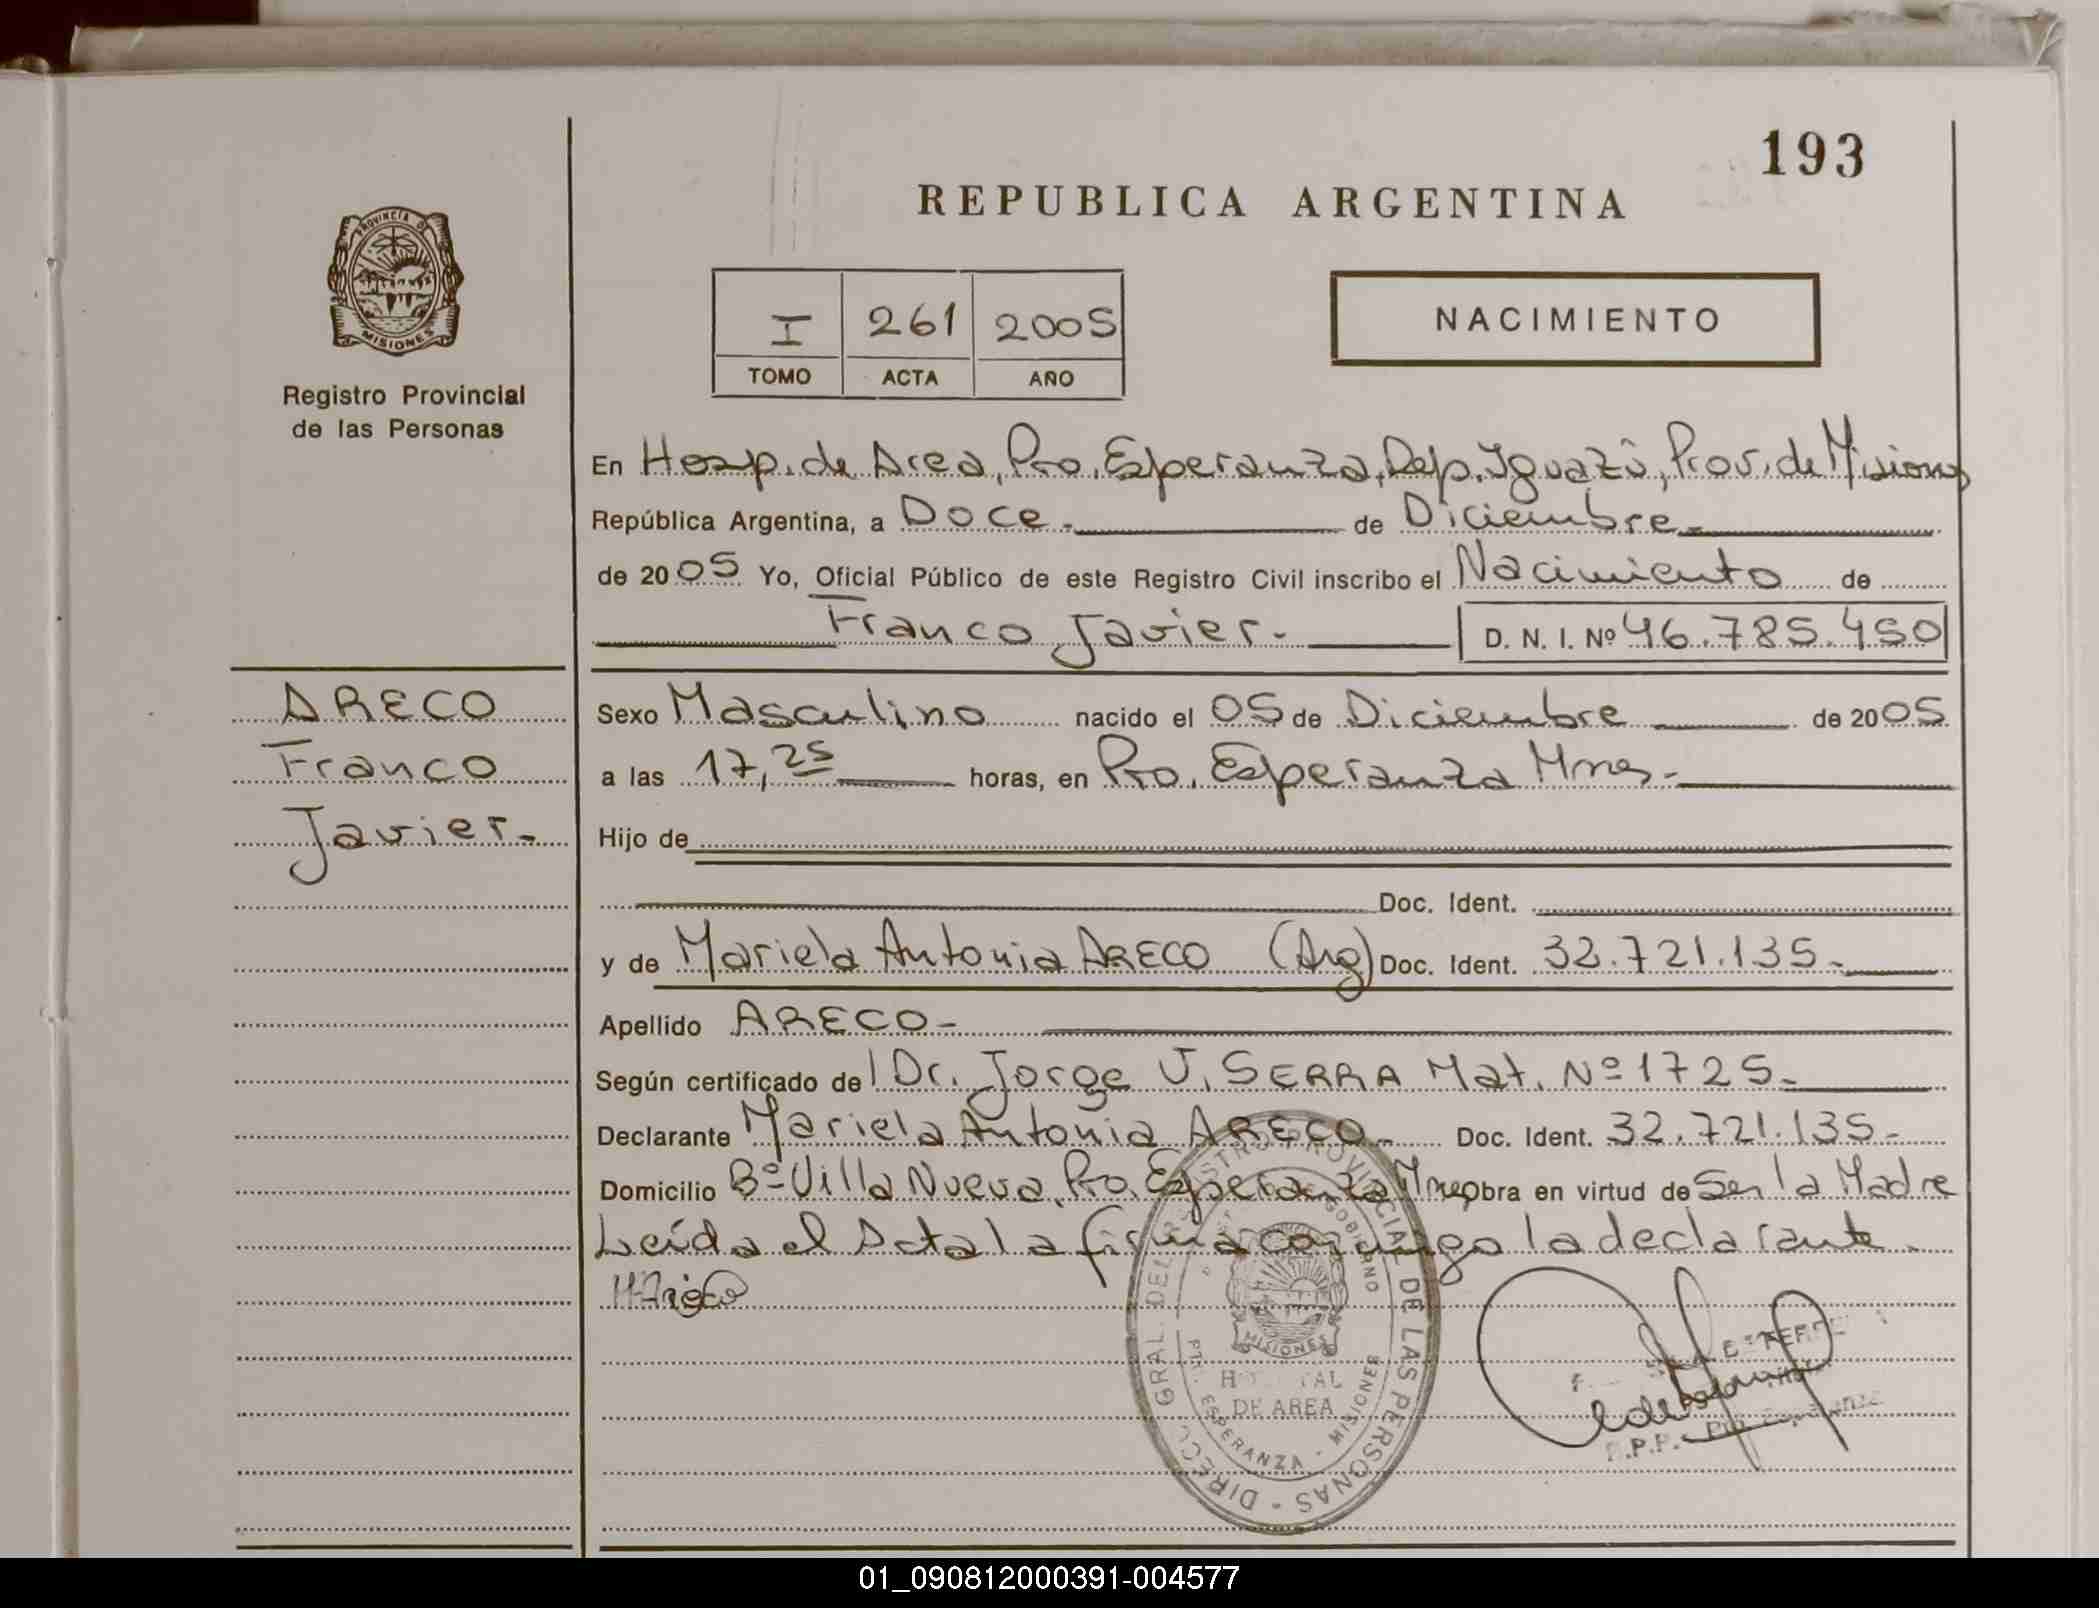 193
REPUBLICA ARGENTINA
PROVINCIA DE
MISIONES
Registro Provincial
de las Personas
I 261 2005
TOMO ACTA AÑO
NACIMIENTO
En Hosp. de Area, Pto. Esperanza, Dep. Iguazú, Prov. de Misiones
República Argentina, a Doce.- de Diciembre.-
de 2005 Yo, Oficial Público de este Registro Civil inscribo el Nacimiento de
Franco Javier.- D. N. I. Nº 46.785.450
ARECO
Franco
Javier.-
Sexo Masculino nacido el 05 de Diciembre de 2005
a las 17,25 horas, en Pto. Esperanza Mnes.-
Hijo de
Doc. Ident.
y de Mariela Antonia ARECO (Arg) Doc. Ident. 32.721.135.-
Apellido ARECO-
Según certificado de l Dr. Jorge J. SERRA Mat. Nº 1725.-
Declarante Mariela Antonia ARECO.- Doc. Ident. 32.721.135-
Domicilio Bº Villa Nueva, Pto. Esperanza Mnes Obra en virtud de Ser la Madre
Leída el Acta la firma conmigo la declarante.
M Areco
DIRECC. GRAL. DEL REGISTRO PROVINCIAL DE LAS PERSONAS -
GOBIERNO
MISIONES
DE AREA
PTO. ESPERANZA - MISIONES
01_090812000391-004577